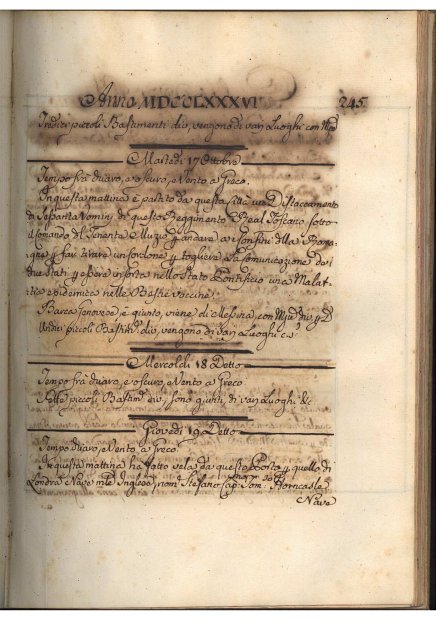 Anno MDCCLXXXVI 245
Tredici piccoli Bastimenti div. vengono di var Luoghi con
Martedi 17 Ottobre
Tempo frà duaro, e oscuro, e Vento a Greco.
In questa mattina è partito da questa Città un Distaccamento
di Sessanta Uomini di questo Reggimento Real Toscano sotto
il Comando del Tenente Muzio p andare a i Confini della Roma-
gna p far tirare un Cordone, e togliere la Comunicazione de i
due Stati p essere insorta nello Stato Pontificio una Malat-
tia epidemica nelle Bestie vaccine.
Barca Genovese è giunto, viene di Messina, con div. p D
Undici piccoli Bastim. div. vengono di var Luoghi &c
Mercoldi 18 Detto
Tempo frà duaro, e oscuro, e Vento a Greco
Sette piccoli Bastim. div. sono giunti, di var Luoghi &c
Giovedi 19 Detto
Tempo duaro, Vento, a Greco.
In questa mattina ha fatto vela da questo Porto p quello di
Londra Nave Inglese, nom. Stefano Cap. Tom. Horncasle
Nave